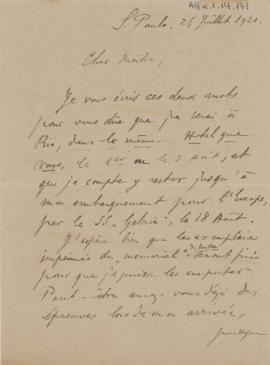 AG 21.14.171
S. Paulo. 25 Juillet 1920.
Cher Maître,
Je vous écris ces deux mots
pour vous dire que je serai à
Rio, dans le même Hotel que
vous, le 1er ou le 3 Août, et
que je compte y rester jusqu'à
mon embarquement pour l'Europe,
par le SS. Gelria, le 18 Août.
J'espère bien que les exemplaires
imprimés du "memorial" seront finis
pour que je puisse les emporter
Peut-être aurez-vous déjà des
épreuves lors de mon arrivée,